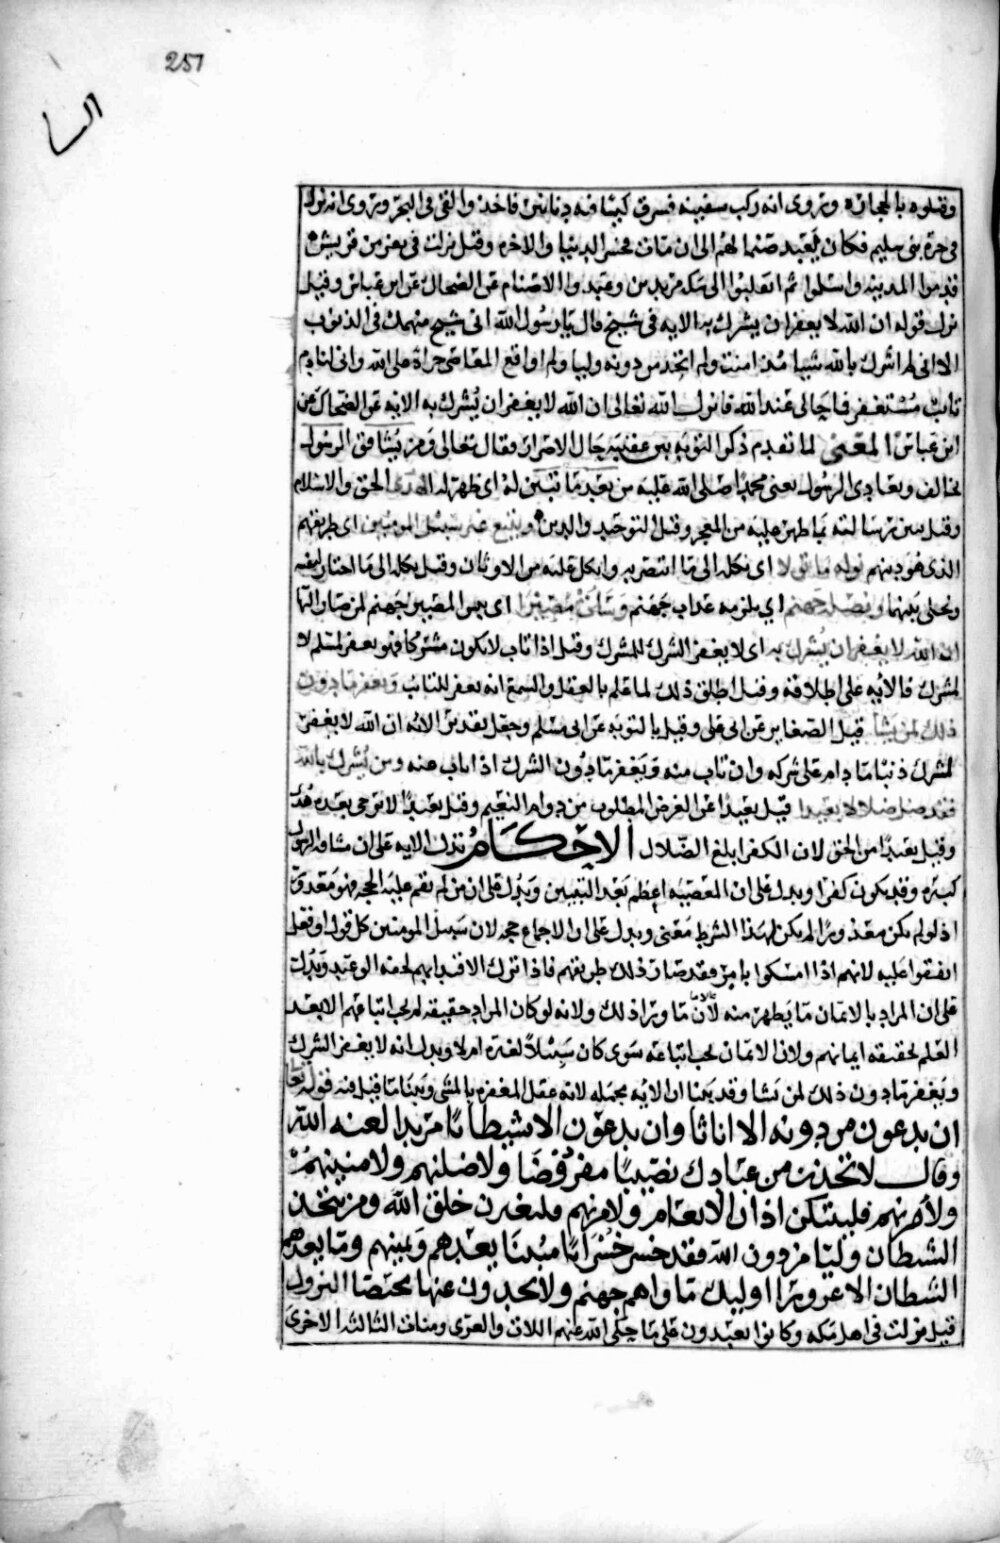 257
النسا
وقتلوه بالحجارة وتروى انه ركب سفينة فسرق كيسا فيه دنانير فاخذ والقي في البحر وتروى انه نزل
في حرة بني سليم فكان يعبد صنما لهم الى ان مات فخسر الدنيا والاخرة وقيل نزلت في نفر من قريش
قدموا المدينة واسلموا ثم انقلبوا الى مكة مرتدين وعبدوا الاصنام عن الضحاك عن ابن عباس وقيل
نزل قوله ان الله لا يغفر ان يشرك به الايه في شيخ قال يا رسول الله اني شيخ منهمك في الذنوب
الا اني لم اشرك بالله شيا منذ امنت ولم اتخذ من دونه وليا ولم اواقع المعاصي جراة على الله واني لنادم
تائب مستغفر فما حالي عند الله فانزل الله تعالى ان الله لا يغفر ان يشرك به الايه عن الضحاك عن
ابن عباس المعنى لما تقدم ذكر التوبة بين عقيبه حال الاصرار فقال تعالى ومن يشاقق الرسول
يخالف ويعادي الرسول يعني محمدا صلى الله عليه من بعد ما تبين له اي ظهر له الهدى الحق والاسلام
وقيل بين رسالته بما ظهر عليه من المعجز وقيل التوحيد والدين ويتبع غير سبيل المومنين اي طريقهم
الذي هو دينهم نوله ما تولى اي نكله الى ما انتصر به واتكل عليه من الاوثان وقيل نكله الى ما اختار لنفسه
ونخلي بينهما ونصله جهنم اي يلزمه عذاب جهنم وساءت مصيرا اي بيس المصير جهنم لمن صار اليها
ان الله لا يغفر ان يشرك به اي لا يغفر الشرك للمشرك وقيل اذا تاب لا يكون مشركا فهو يغفر لمسلم لا
لمشرك فالايه على اطلاقه وقيل اطلق ذلك لما علم بالعقل والسمع انه يغفر للتائب ويغفر ما دون
ذلك لمن يشا قيل الصغاير عن ابي علي وقيل بالتوبة عن ابي مسلم وجعل تقدير الايه ان الله لا يغفر
لمشرك ذنبا ما دام على شركه وان تاب منه ويغفر ما دون الشرك اذا تاب عنه ومن يشرك بالله
فقد ضل ضلالا بعيدا قيل بعيدا عن الغرض المطلوب من دوام النعيم وقيل بعيدا لا يرجى بعده هدى
وقيل بعيدا من الحق لان الكفر ابلغ الضلال الاحكام تدل الايه على ان مشاقة الرسول
كبيرة وقد يكون كفرا ويدل على ان المعصية اعظم بعد التبيين ويدل على ان من لم تقم عليه الحجه فهو معذور
اذ لو لم يكن معذورا لم يكن لهذا الشرط معنى ويدل على ان الاجماع حجه لان سبيل المومنين كل قول او فعل
اتفقوا عليه لانهم اذا امسكوا بامر فقد صار ذلك طريقهم فاذا ترك الاقتدا بهم لحقه الوعيد وتدل
على ان المراد بالايمان ما يظهر منه لان ما ورا ذلك ولانه لو كان المراد حقيقته لم يجب اتباعهم الا بعد
العلم بحقيقه ايمانهم ولان الايمان يجب اتباعه سوى كان سبيلا لغيره ام لا ويدل انه لا يغفر الشرك
ويغفر ما دون ذلك لمن يشا وقد بينا ان الايه مجمله لانه علق المغفرة بالمشي وبينا ما قيل فيه قوله تعالى
ان يدعون من دونه الا اناثا وان يدعون الا شيطانا مريدا لعنه الله
وقال لاتخذن من عبادك نصيبا مفروضا ولاضلنهم ولامنينهم
ولآمرنهم فليبتكن اذان الانعام ولآمرنهم فليغيرن خلق الله ومن يتخذ
الشيطان وليا من دون الله فقد خسر خسرانا مبينا يعدهم ويمنيهم وما يعدهم
الشيطان الا غرورا اوليك ماواهم جهنم ولا يجدون عنها محيصا النزول
قيل نزلت في اهل مكه وكانوا يعبدون على ما حكى الله عنهم اللات والعزى ومناة الثالثه الاخرى